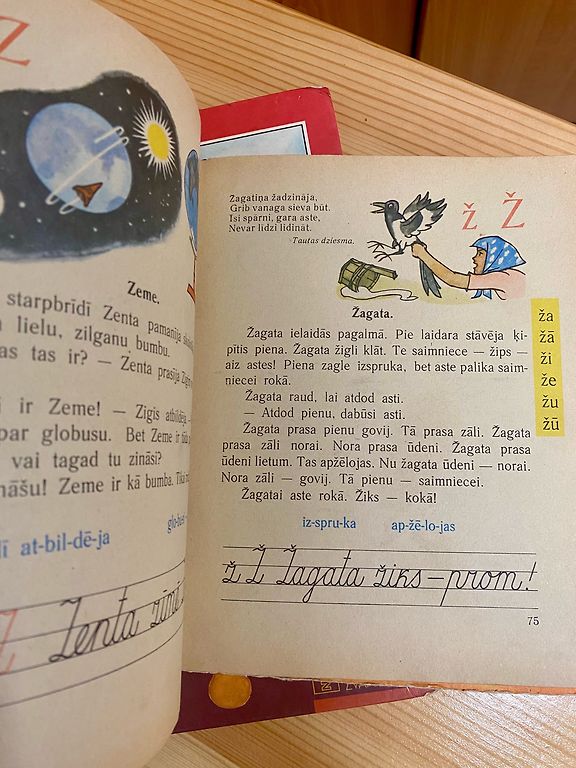 Z
Zeme.
starpbrīdī Zenta pamanīja
lielu, zilganu bumbu.
as tas ir? — Zenta prasīja
i ir Zeme! — Zigis atbildēja.
par globusu. Bet Zeme ir
vai tagad tu zināsi?
nāšu! Zeme ir kā bumba.
at-bil-dē-ja
Zenta
Žagatiņa žadzināja,
Grib vanaga sieva būt.
Īsi spārni, gara aste,
Nevar līdzi lidināt.
Tautas dziesma.
ž Ž
Žagata.
Žagata ielaidās pagalmā. Pie laidara stāvēja ķi-
pītis piena. Žagata žigli klāt. Te saimniece — žips —
aiz astes! Piena zagle izspruka, bet aste palika saim-
niecei rokā.
Žagata raud, lai atdod asti.
— Atdod pienu, dabūsi asti.
Žagata prasa pienu govij. Tā prasa zāli. Žagata
prasa zāli norai. Nora prasa ūdeni. Žagata prasa
ūdeni lietum. Tas apžēlojas. Nu žagata ūdeni — norai.
Nora zāli — govij. Tā pienu — saimniecei.
Žagatai aste rokā. Žiks — kokā!
iz-spru-ka ap-žē-lo-jas
ž Ž Žagata žiks—prom!
75
ža
žā
ži
že
žu
žū